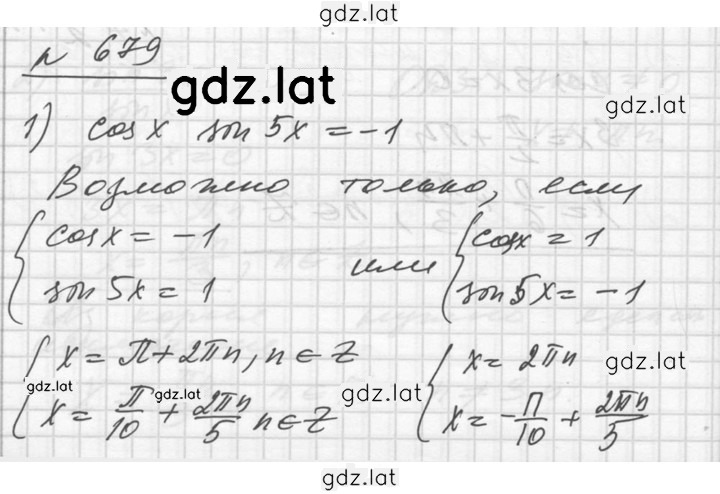 gdz.lat
№ 679
gdz.lat
gdz.lat
1) cos x sin 5x = -1
Возможно только, если
{ cos x = -1
sin 5x = 1
или
{ cos x = 1
sin 5x = -1
{ x = π + 2πn, n ∈ Z
x = π/10 + 2πn/5 n ∈ Z
{ x = 2πn
x = -π/10 + 2πn/5
gdz.lat
gdz.lat
gdz.lat
gdz.lat
gdz.lat